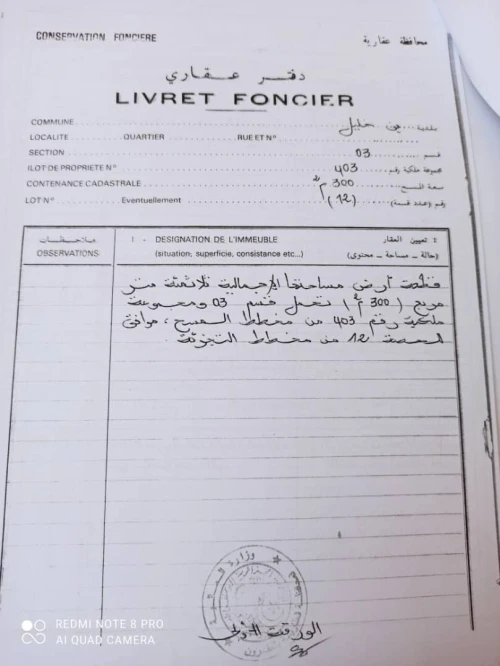 CONSERVATION FONCIERE محافظة عقارية
دفتر عقاري
LIVRET FONCIER
COMMUNE بن خليل بلدية
LOCALITE QUARTIER RUE ET N°
SECTION 03 قسم
ILOT DE PROPRIETE N° 403 مجموعة ملكية رقم
CONTENANCE CADASTRALE 300 م² سعة المسح
LOT N° Eventuellement (12)
ملاحظات
OBSERVATIONS
1 - DESIGNATION DE L'IMMEUBLE تعيين العقار
(situation, superficie, consistance etc...) (حالة - مساحة - محتوى)
قطعة أرض مساحتها الإجمالية ثلاثمئة متر
مربع (300 م²) تحمل قسم 03 ومجموعة
ملكية رقم 403 من مخطط المسح، موافق
للحصة 12 من مخطط التجزئة
وزارة المالية
REDMI NOTE 8 PRO
AI QUAD CAMERA